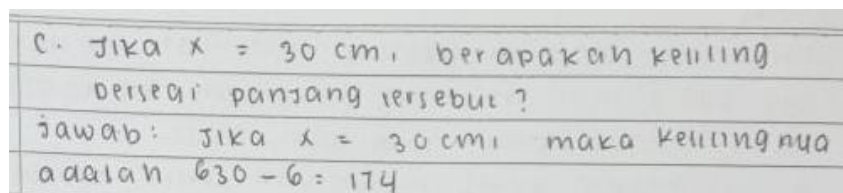 C. Jika x = 30 cm, berapakah keliling
persegi panjang tersebut?
jawab: Jika x = 30 cm, maka kelilingnya
adalah 630 - 6 = 174